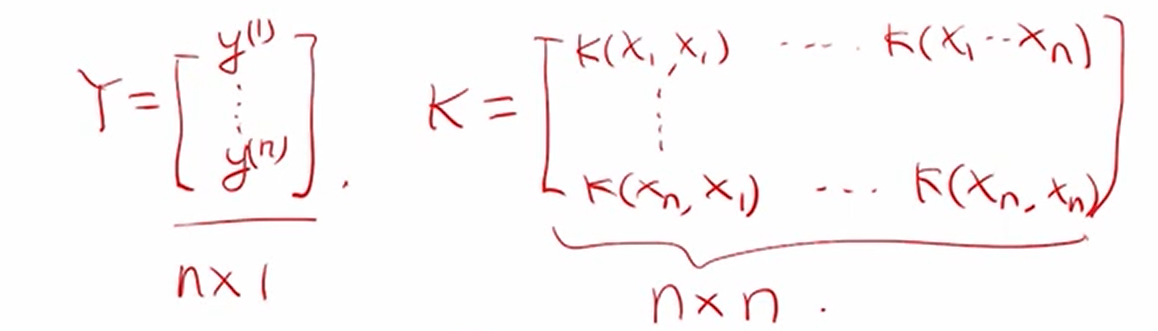 Y = [ y^(1) ⋮ y^(n) ] . K = [ K(x₁, x₁) ---- K(x₁ -- xₙ) ⋮ K(xₙ, x₁) --- K(xₙ, xₙ) ]
n×1
n×n .